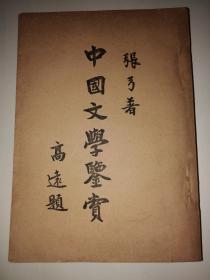 張弓著
中國文學鑒賞
高遠題